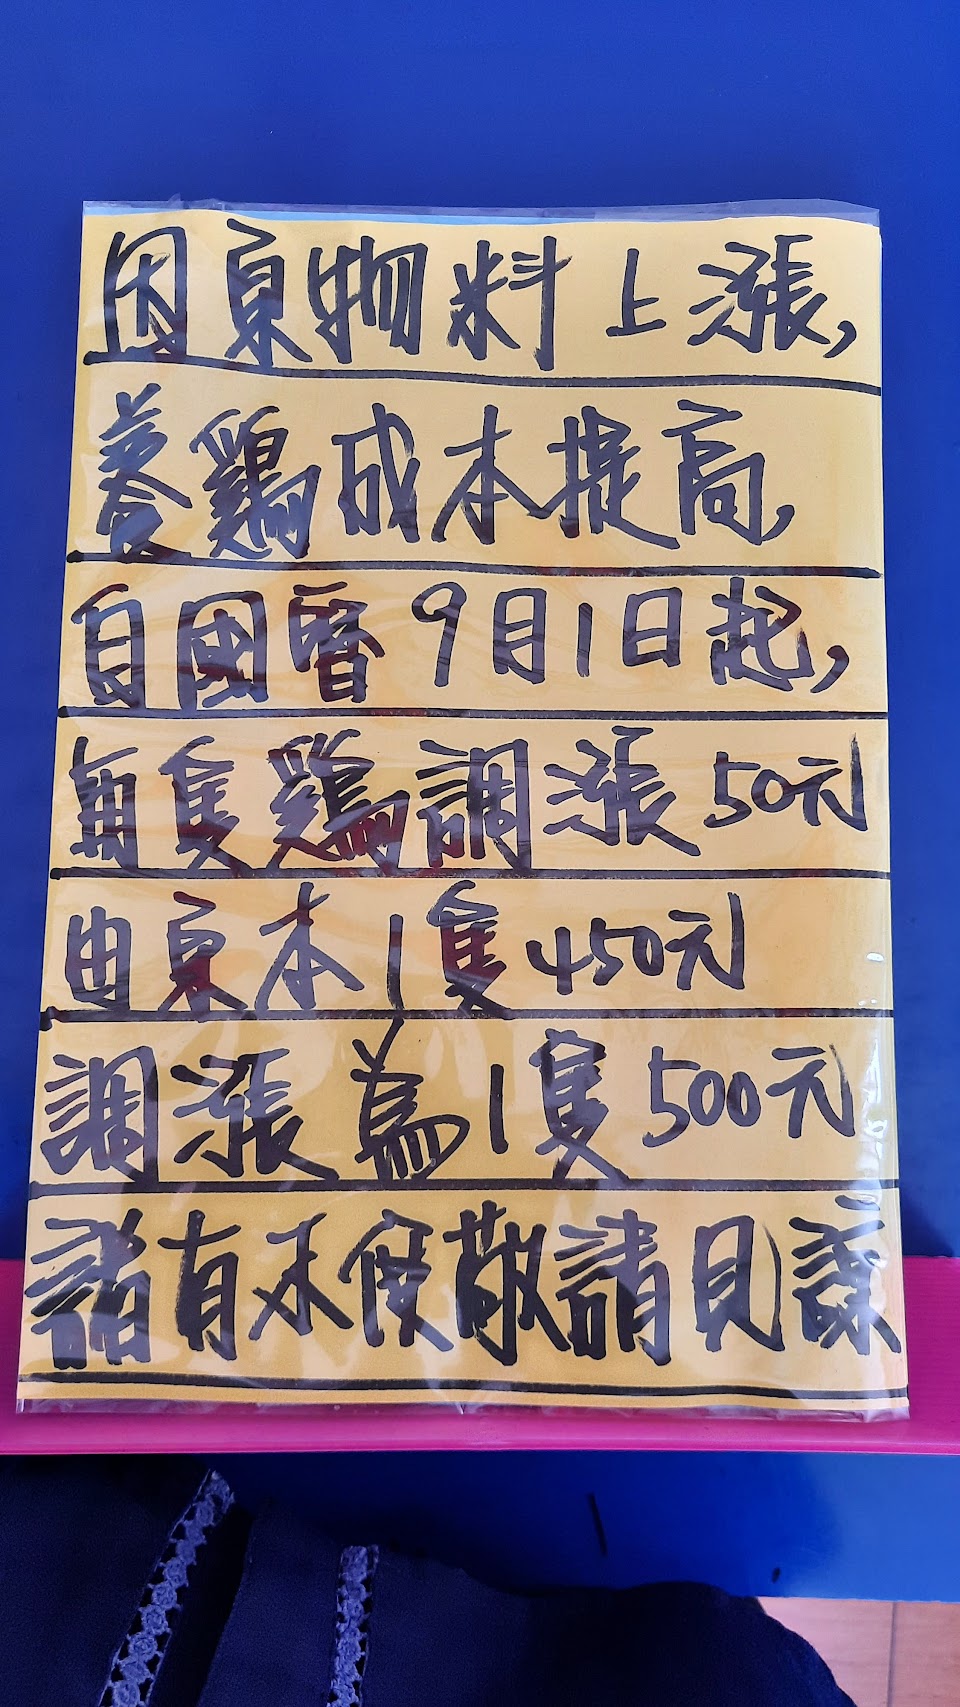 因原物料上漲,
養鷄成本提高,
自國曆9月1日起,
每隻鷄調漲50元
由原本1隻450元
調漲為1隻500元
諸有不便敬請見諒